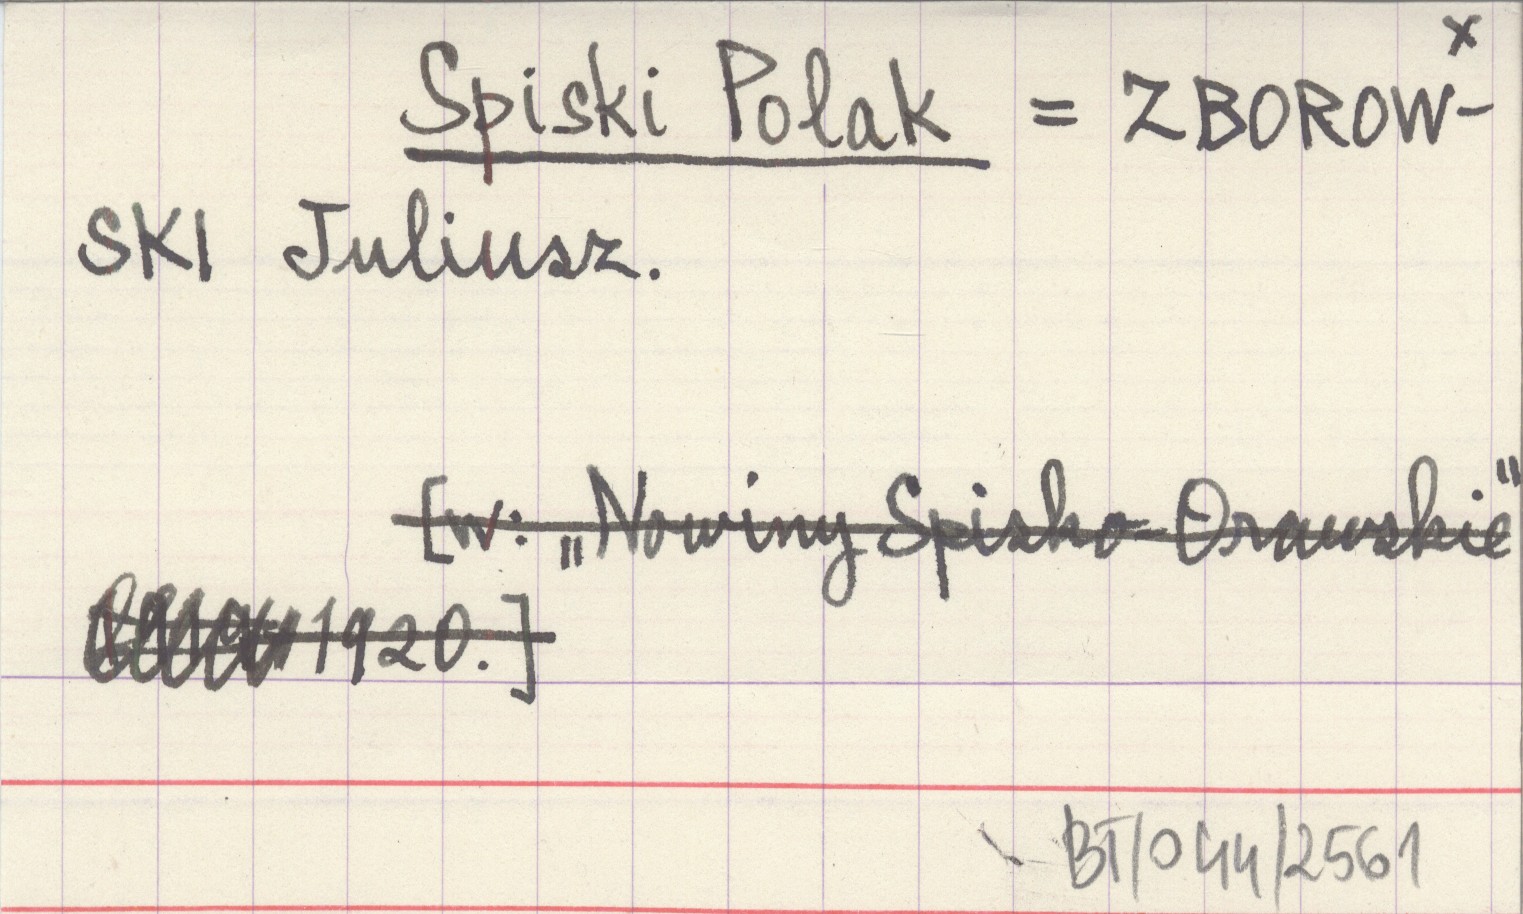 x
Spiski Polak = ZBOROW-
SKI Juliusz.
[w: „Nowiny Spisko-Orawskie"
1920.]
BT/044/2561